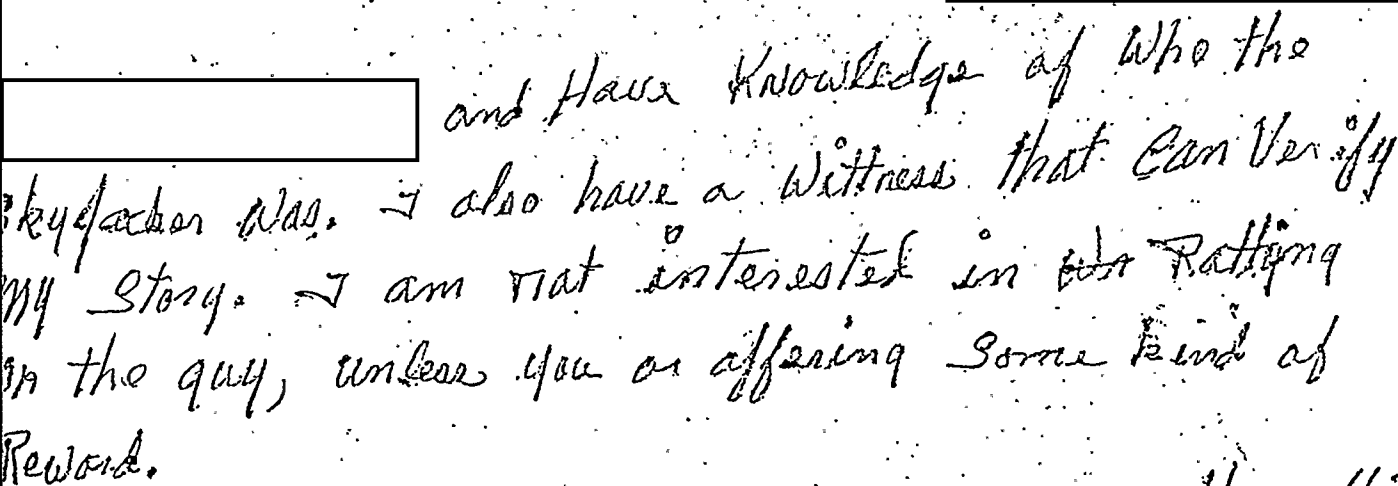 and Have Knowledge of Who the
skyjacker Was. I also have a Wittness that Can Verify
my Story. I am not interested in Rattyng
on the guy, unless you or offering Some kind of
Reward.